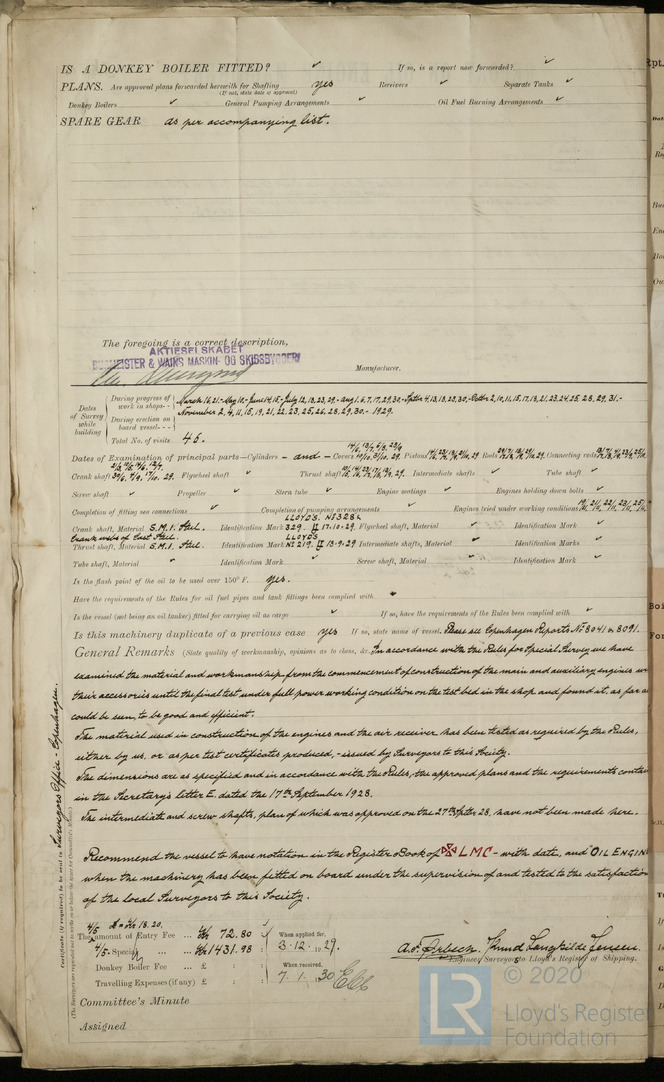 IS A DONKEY BOILER FITTED? ✓ If so, is a report now forwarded? ✓
PLANS. Are approved plans forwarded herewith for Shafting yes Receivers ✓ Separate Tanks ✓
(If not, state date of approval)
Donkey Boilers ✓ General Pumping Arrangements ✓ Oil Fuel Burning Arrangements ✓
SPARE GEAR as per accompanying list.
The foregoing is a correct description,
AKTIESELSKABET
BURMEISTER & WAIN'S MASKIN- OG SKIBSBYGGERI
Manufacturer.
Dates of Survey while building
During progress of work in shops - - March 16, 21 - May 10 - June 14, 15 - July 12, 18, 23, 29 - Aug 1. 6. 7. 17. 29, 30 - Septbr 4, 13, 18, 20, 30, - Octbr 2, 10, 11, 15, 17, 18, 21, 23, 24, 25, 28, 29, 31. -
During erection on board vessel - - November 2, 4, 11, 15, 19, 21, 22, 23, 25, 26, 28, 29, 30. - 1929.
Total No. of visits 45.
Dates of Examination of principal parts—Cylinders - and - Covers Pistons Rods Connecting rods
Crank shaft Flywheel shaft ✓ Thrust shaft Intermediate shafts ✓ Tube shaft ✓
Screw shaft ✓ Propeller ✓ Stern tube ✓ Engine seatings ✓ Engines holding down bolts ✓
Completion of fitting sea connections ✓ Completion of pumping arrangements ✓ Engines tried under working conditions
LLOYD'S. Nº 328 &
Crank shaft, Material S.M.I. Steel. Identification Mark 329. 17.10.29. Flywheel shaft, Material ✓ Identification Mark ✓
Crank webs of Cast Steel. LLOYD'S
Thrust shaft, Material S.M.I. Steel. Identification Mark Nº 219. 13.9.29 Intermediate shafts, Material ✓ Identification Marks ✓
Tube shaft, Material ✓ Identification Mark ✓ Screw shaft, Material ✓ Identification Mark ✓
Is the flash point of the oil to be used over 150° F. yes.
Have the requirements of the Rules for oil fuel pipes and tank fittings been complied with
Is the vessel (not being an oil tanker) fitted for carrying oil as cargo ✓ If so, have the requirements of the Rules been complied with ✓
Is this machinery duplicate of a previous case yes If so, state name of vessel. Please see Copenhagen Reports Nº 8041 & 8091.
General Remarks (State quality of workmanship, opinions as to class, &c. In accordance with the Rules for Special Survey we have
examined the material and workmanship from the commencement of construction of the main and auxiliary engines
their accessories until the final test under full power working condition on the test bed in the shop and found it, as far as
could be seen, to be good and efficient.
The material used in construction of the engines and the air receiver has been tested as required by the Rules,
either by us, or as per test certificates produced, - issued by Surveyors to this Society.
The dimensions are as specified and in accordance with the Rules, the approved plans and the requirements
in the Secretary's letter E. dated the 17th September 1928.
The intermediate and screw shafts, plan of which was approved on the 27th Septbr 28, have not been made here.
Recommend the vessel to have notation in the Register Book of ✠ LMC - with date, and OIL ENGINE
when the machinery has been fitted on board under the supervision of and tested to the satisfaction
of the local Surveyors to this Society.
4/5 £ = Kr 18.20.
The amount of Entry Fee ... Kr 72.80 When applied for,
4/5. Special ... ... Kr 1431.98 3.12. 1929.
Donkey Boiler Fee ... £ : : When received,
Travelling Expenses (if any) £ : : 7.1.30
Knud Langkilde Jensen.
Engineer Surveyors to Lloyd's Register of Shipping.
Committee's Minute
Assigned
Certificate (if required) to be sent to Surveyors Office - Copenhagen.
(The Surveyors are requested not to write on or below the space for Committee's Minute.)
LR
© 2020
Lloyd's Register
Foundation